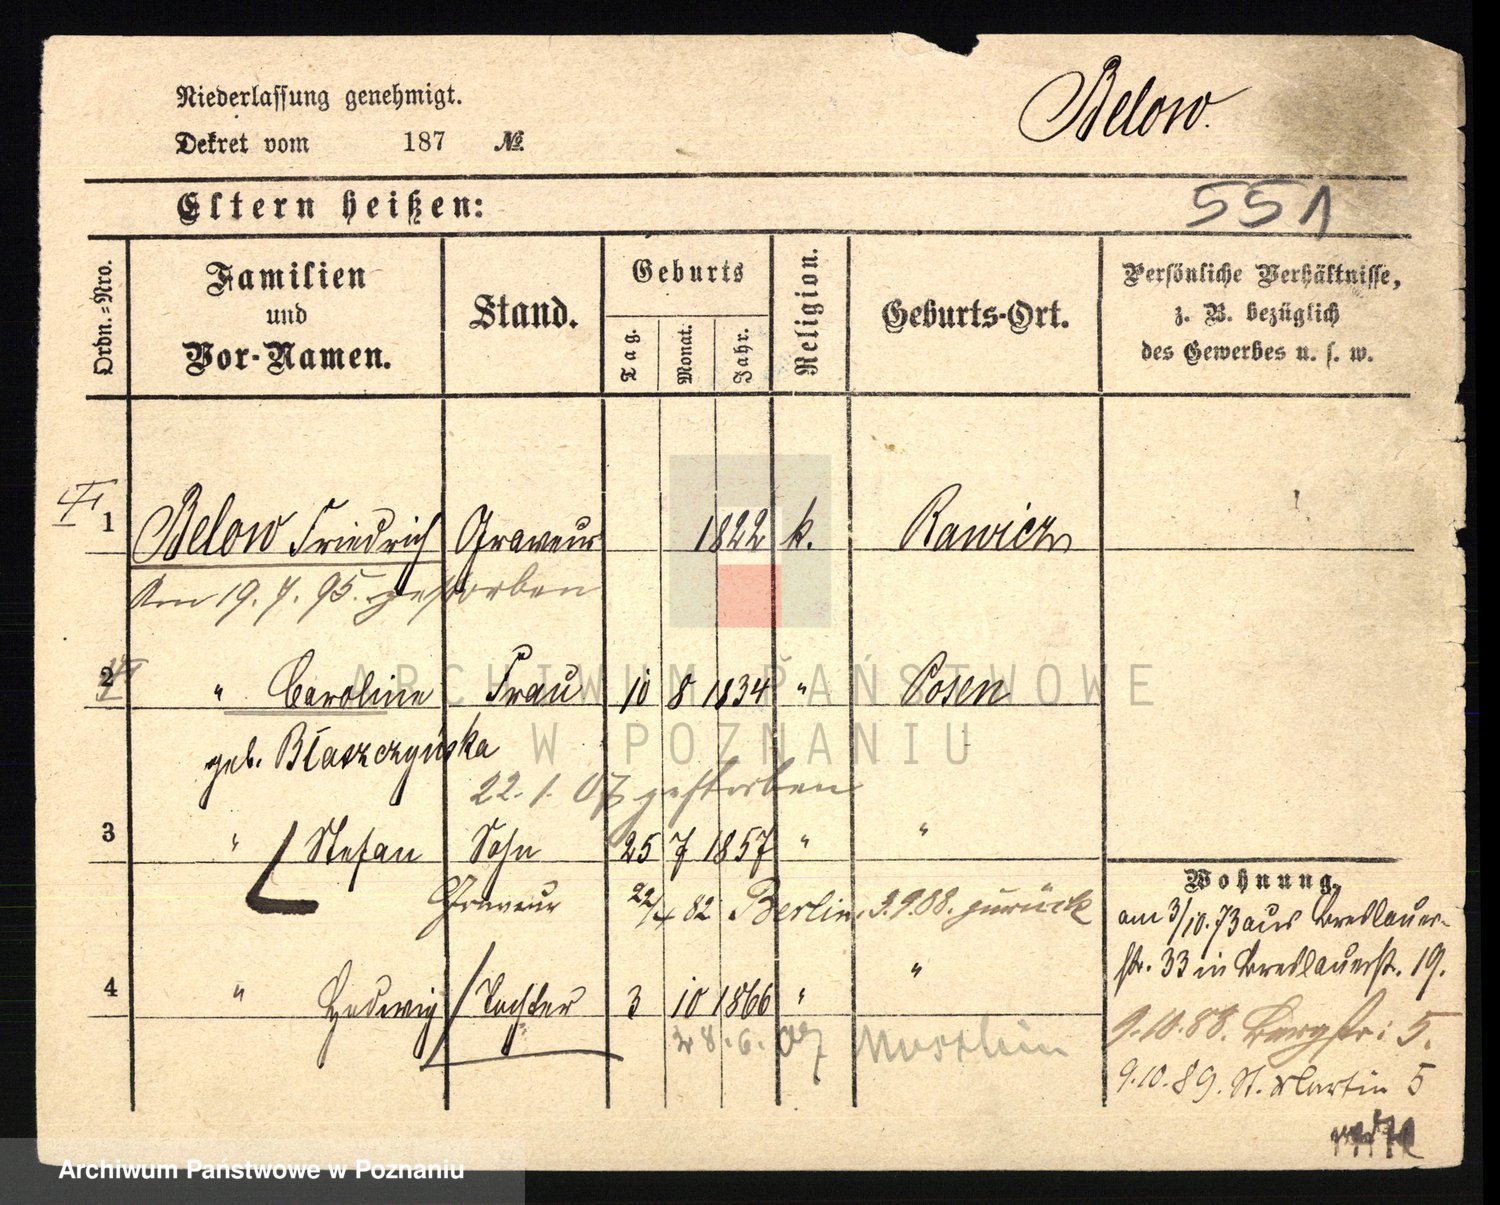 Niederlassung genehmigt.
Below.
Dekret vom 187 №
Eltern heißen:
551
Ordn.-Nro.
Familien und Vor-Namen.
Stand.
Geburts
Tag.
Monat.
Jahr.
Religion.
Geburts-Ort.
Persönliche Verhältnisse,
z. B. bezüglich
des Gewerbes u. s. w.
1 Below Friedrich Graveur 1822 k. Rawicz
Am 19. 7. 95. gestorben
2 " Caroline Frau 10 8 1834 " Posen
geb. Błaszczyńska
22. 1. 07 gestorben
3 " Stefan Sohn 25 7 1857 " "
Graveur 22/4 82 Berlin, 3.9.08. zurück
4 " Hedwig Tochter 3 10 1866 " "
28. 6. 07
Wohnung.
am 3/10. 73 aus Breslauer-
str. 33 in Breslauerst. 19.
9.10.88. Bergstr: 5.
9.10.89. St. Martin 5
ARCHIWUM PAŃSTWOWE
W POZNANIU
Archiwum Państwowe w Poznaniu